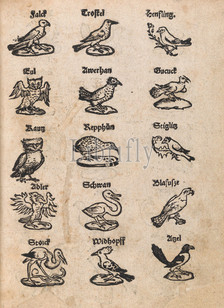 Falck Troſtel Henfling.
Eul Awerhan Guguck
Kautz Repphün Stiglitz
Adler Schwan Blafufze
Storck Widhopff Atzel